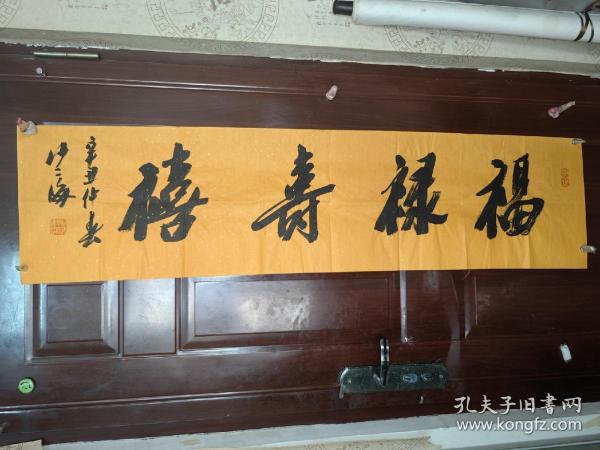 福禄寿禧
辛丑仲春
孔夫子旧书网
www.kongfz.com